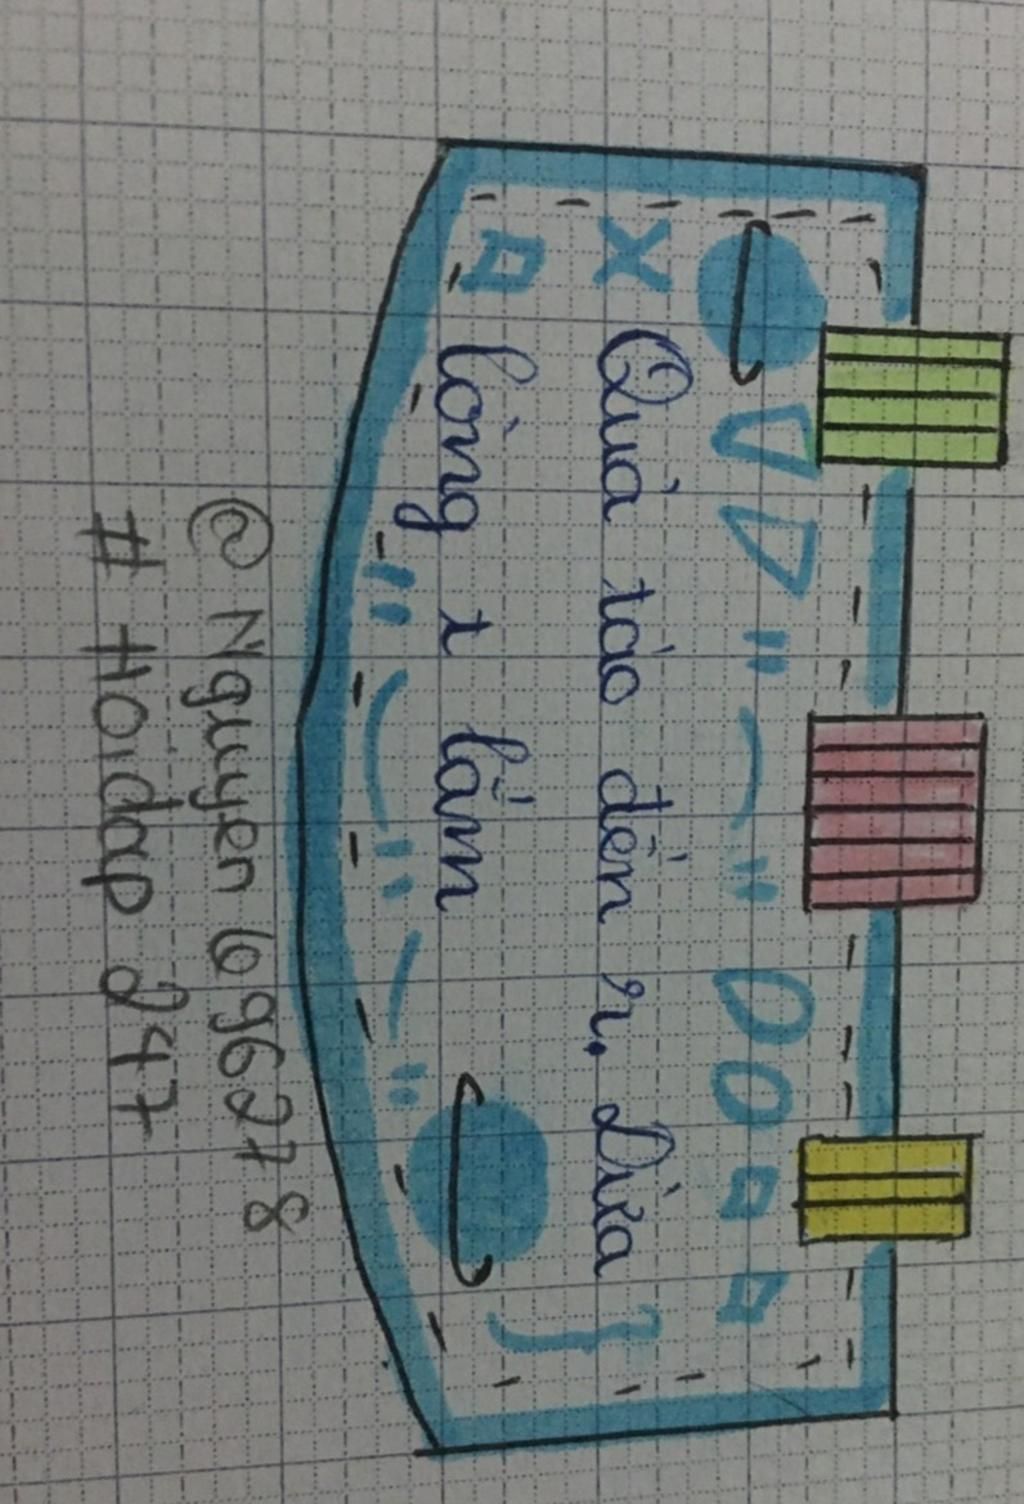 Quà tào đến r. Dừa
lòng t lắm
@ Nguyen69678
# Hoidap 247